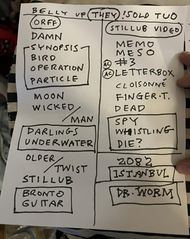 BELLY UP (THEY!) SOLD TUO
ORFF
DAMN
SYNOPSIS
BIRD
OPERATION
PARTICLE
MOON
WICKED/
MAN
DARLINGS
UNDERWATER
OLDER/
TWIST
STILLUB
BRONTO
GUITAR
STILLUB VIDEO
MEMO
MESO
AC #3
AC LETTERBOX
CLOISONNÉ
FINGER-T.
DEAD
SPY
WHISTLING
DIE?
2082
ISTANBUL
DR. WORM